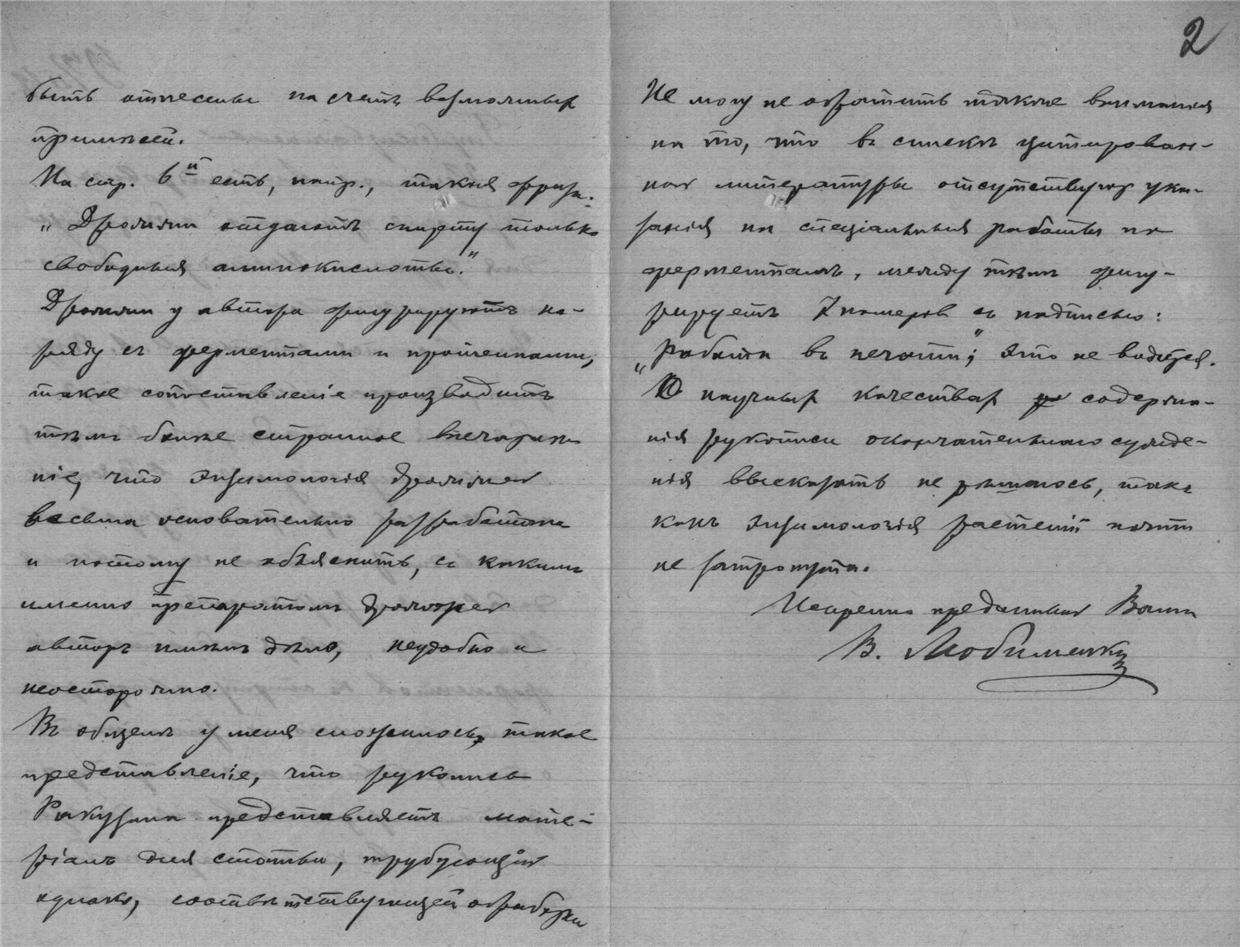 быть отнесены на счетъ возможныхъ
примѣсей.
На стр. 6й есть, напр., такая фраза:
„Дрожжи отдаютъ спирту только
свободныя аминокислоты."
Дрожжи у автора фигурируютъ на-
ряду съ ферментами и протеинами,
такое сопоставленіе производитъ
тѣмъ болѣе странное впечатлѣ-
ніе, что энзимологія дрожжей
весьма основательно разработана
и потому не объяснить, съ какимъ
именно препаратомъ дрожжей
авторъ имѣлъ дѣло, неудобно и
неосторожно.
Въ общемъ у меня сложилось такое
представленіе, что рукопись
Ракузина представляетъ мате-
ріалъ для статьи, требующій
однако, соотвѣтствующей обработки
2
Не могу не обратить также вниманія
на то, что въ спискѣ цитирован-
ной литературы отсутствуютъ ука-
занія на спеціальныя работы по
ферментамъ, между тѣмъ фигу-
рируетъ 7 номеровъ съ надписью:
„Работа въ печати"; это не водится.
О научныхъ качествахъ содержа-
нія рукописи окончательнаго сужде-
нія высказать не рѣшаюсь, такъ
какъ энзимологія растеній почти
не затронута.
Искренно преданный Вамъ
В. Любименко